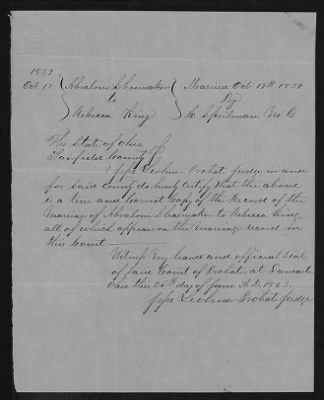 1839
Oct 13 Abraham Shoemaker
to
Rebecca King
Married Oct 17th 1839
By
M. Spielman
The State of Ohio
Fairfield County
Jesse Leohner Probate Judge in and
for said county do hereby certify that the above
is a true and correct copy of the Record of the
Marriage of Abraham Shoemaker to Rebecca King
all of which appears on the marriage record in
this Court
Witness my hand and official seal
of said Court of Probate at Lancaster
Ohio this 26th day of June A.D. 1863.
Jesse Leohner Probate Judge